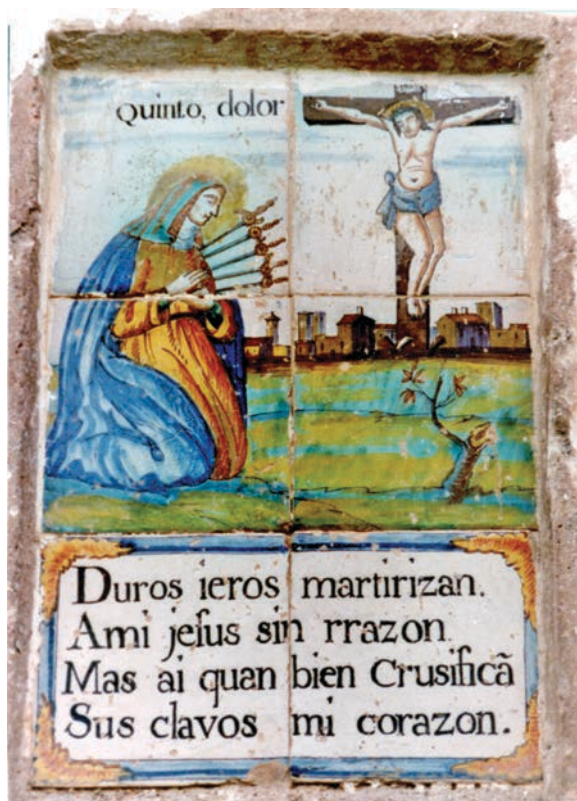 Quinto, dolor
Duros ieros martirizan.
Ami jesus sin rrazon
Mas ai quan bien Crusificã
Sus clavos mi corazon.